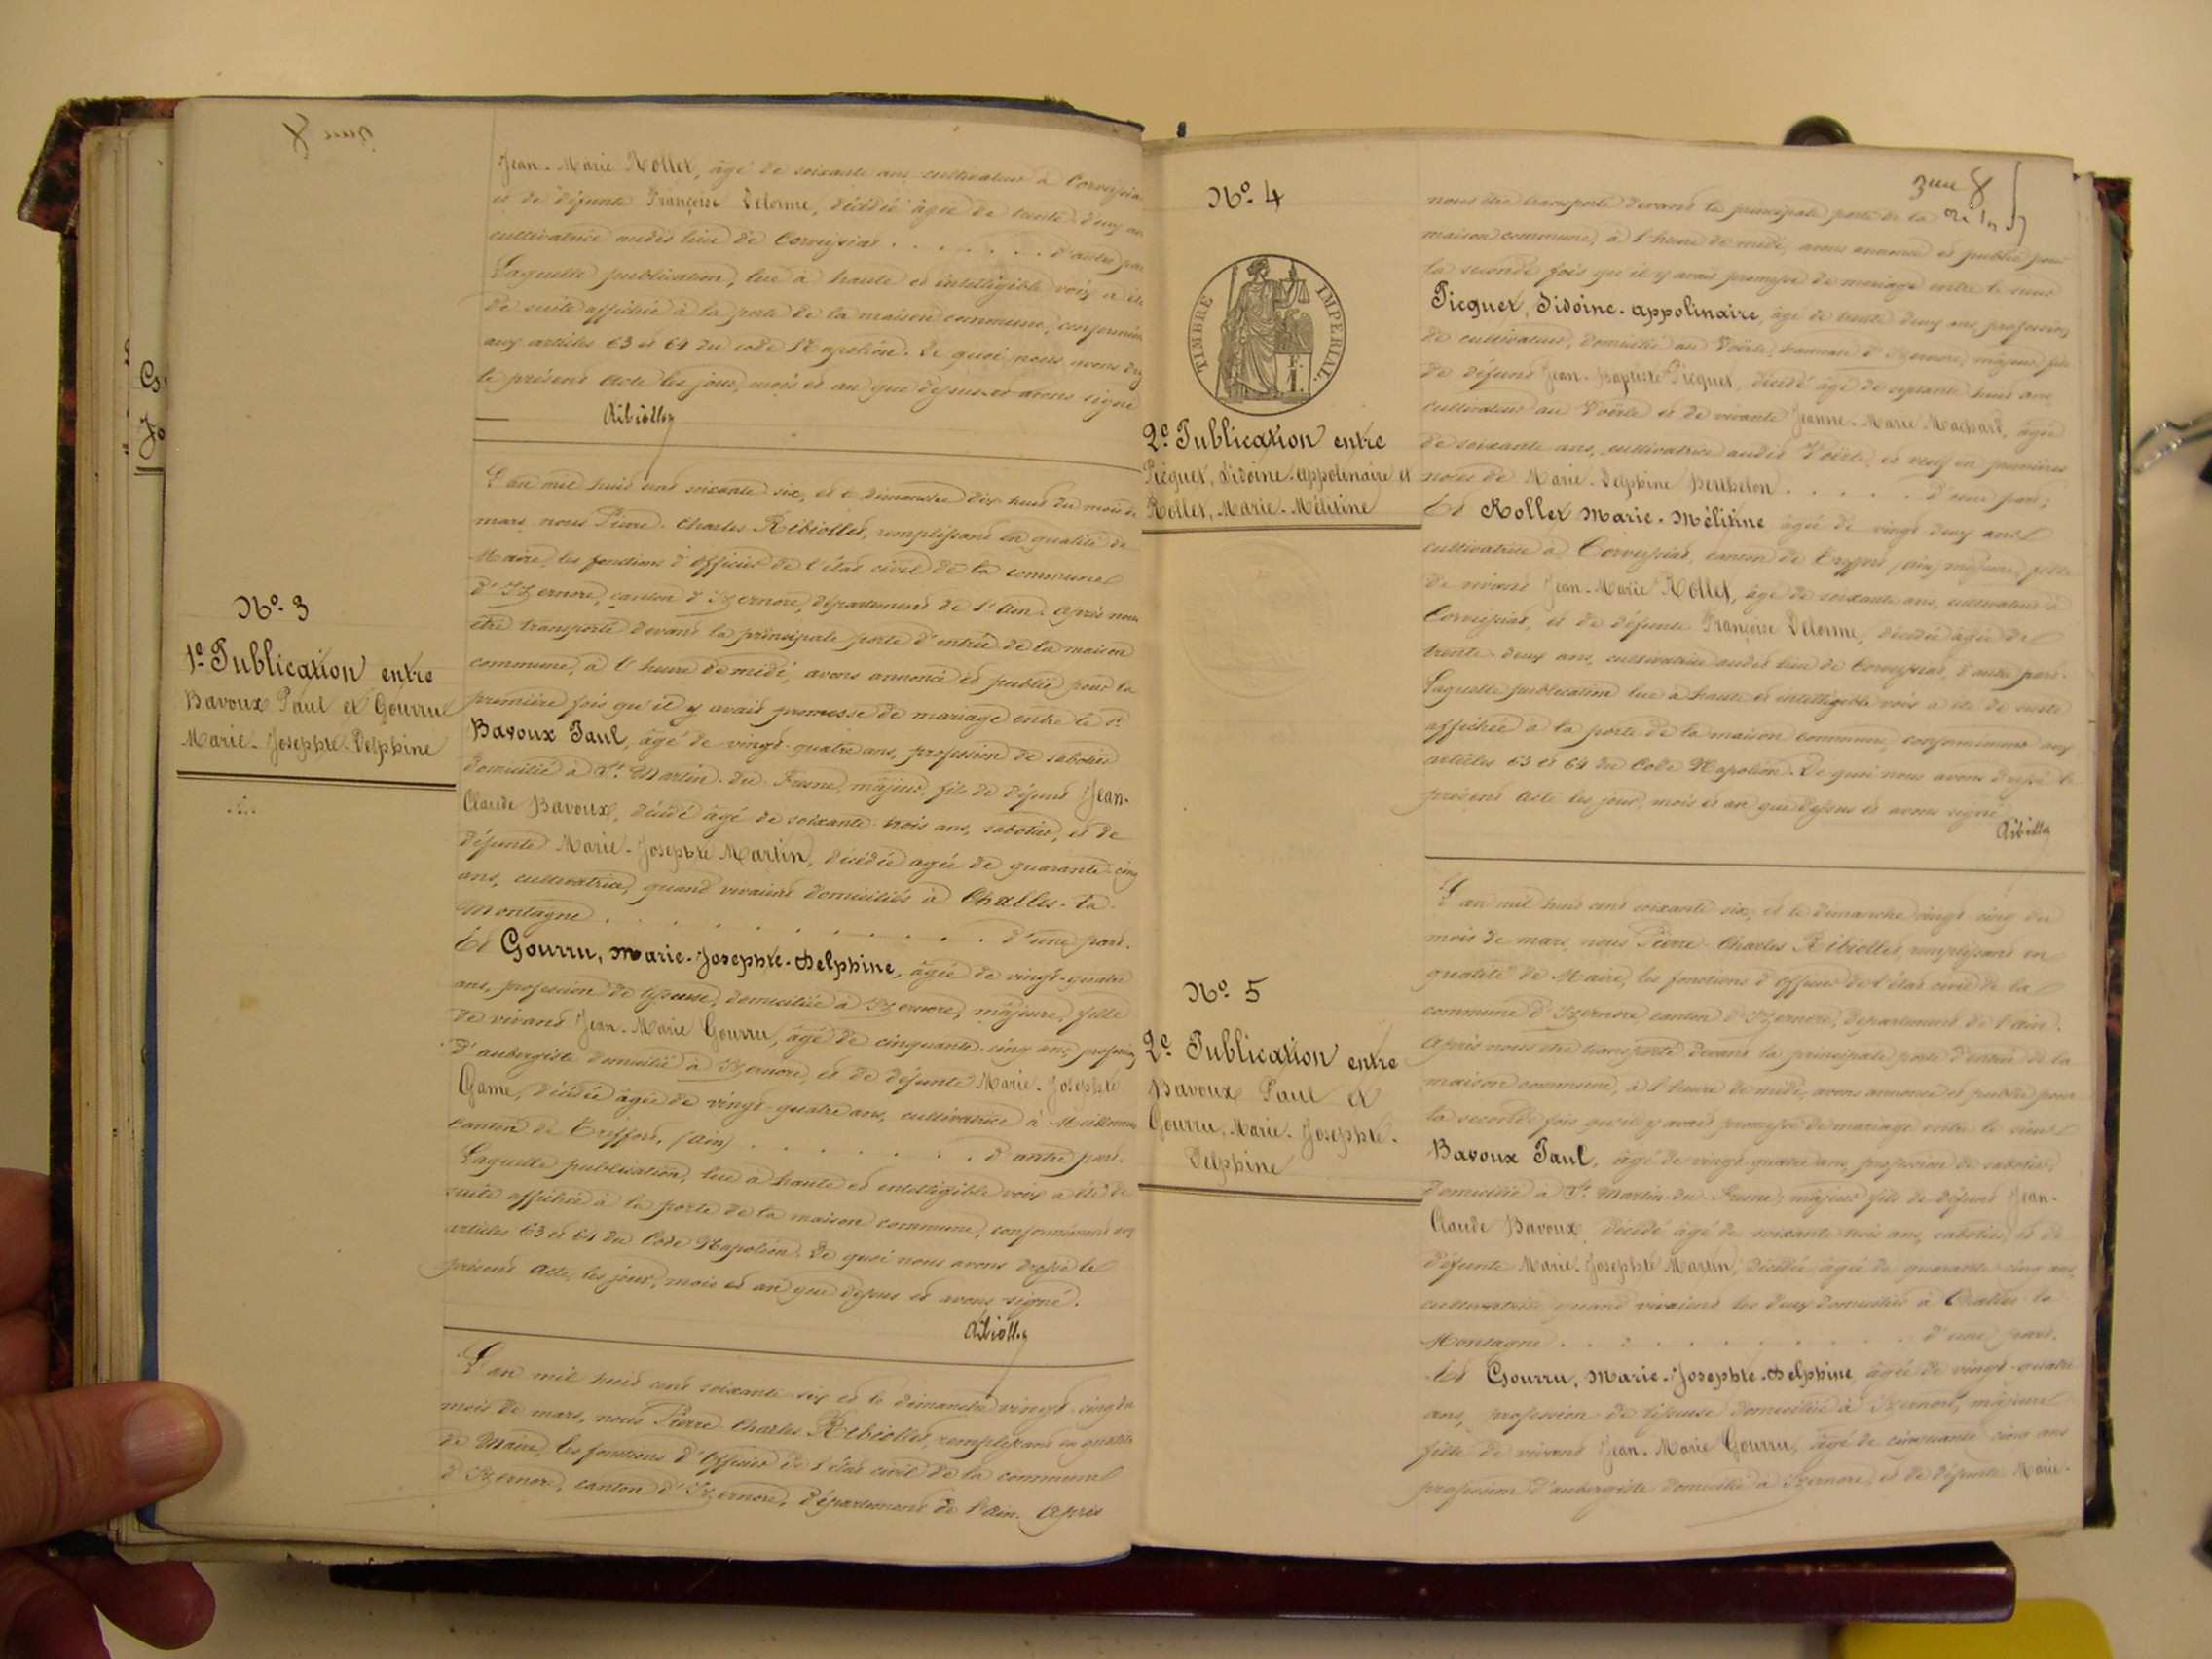 Jean-Marie Rollet, âgé de soixante ans cultivateur à Corveissia
et de défunte Françoise Delorme, décédée âgée de trente deux an
cultivatrice audit lieu de Corveissiat . . . . . . . d'autre par
Laquelle publication, lue à haute et intelligible voix a été
de suite affichée à la porte de la maison commune, conformém
aux articles 63 et 64 du code Napoléon. De quoi nous avons
le présent acte les jour, mois et an que dessus et avons signé
Ribiollet
N° 3
1e Publication entre
Bavoux Paul et Gourru
Marie-Josephte-Delphine
L'an mil huit cent soixante six, et le dimanche dix huit du mois de
mars, nous Pierre-Charles Ribiollet, remplissant en qualité de
Maire, les fonctions d'officier de l'état civil de la commune
d'Izernore, canton d'Izernore, département de l'Ain. Après nous
être transporté devant la principale porte d'entrée de la maison
commune, à l'heure de midi, avons annoncé et publié pour la
première fois qu'il y avait promesse de mariage entre le sr
Bavoux Paul, âgé de vingt-quatre ans, profession de sabotier
domicilié à St Martin-du-Fresne, majeur, fils de défunt Jean-
Claude Bavoux, décédé âgé de soixante-trois ans, sabotier, et de
défunte Marie-Josephte Martin, décédée agée de quarante-cinq
ans, cultivatrice, quand vivaient domiciliés à Challes-la-
Montagne . . . . . . . . . . d'une part.
Et Gourru, Marie-Josephte-Delphine, âgée de vingt-quatre
ans, profession de tisseuse, domiciliée à Izernore, majeure, fille
de vivant Jean-Marie Gourru, âgé de cinquante-cinq ans, profession
d'aubergiste domicilié à Izernore, et de défunte Marie-Josephte
Game, décédée âgée de vingt-quatre ans, cultivatrice à
canton de Treffort, (Ain) . . . . . . . . d'autre part.
Laquelle publication, lue à haute et intelligible voix a été de
suite affichée à la porte de la maison commune, conformément aux
articles 63 et 64 du Code Napoléon. De quoi nous avons dressé le
présent Acte, les jour, mois et an que dessus et avons signé.
Ribiollet
L'an mil huit cent soixante-six et le dimanche vingt-cinq du
mois de mars, nous Pierre Charles Ribiollet, remplissant en qualité
de Maire, les fonctions d'officier de l'état civil de la commune
d'Izernore, canton d'Izernore, département de l'Ain. Après
N° 4
TIMBRE IMPERIAL
2e Publication entre
Picquet, Sidoine-Appolinaire et
Rollet, Marie-Mélitine
nous être transporté devant la principale porte de la
maison commune, à l'heure de midi, avons annoncé et publié pour
la seconde fois qu'il y avait promesse de mariage entre le sieur
Picquet, Sidoine-Appolinaire, âgé de trente deux ans, profession
de cultivateur, domicilié au Voërle, hameau d'Izernore, majeur fils
de défunt Jean-Baptiste Picquet, décédé âgé de septante huit ans,
cultivateur au Voërle et de vivante Jeanne-Marie Machard, âgée
de soixante ans, cultivatrice audit Voërle, et veuf en premières
noces de Marie-Delphine Berthelon . . . . . d'une part;
Et Rollet Marie-Mélitine âgée de vingt-deux ans
cultivatrice à Corveissiat, canton de Treffort (Ain) majeure, fille
de vivant Jean-Marie Rollet, âgé de soixante ans, cultivateur à
Corveissiat, et de défunte Françoise Delorme, décédée âgée de
trente-deux ans, cultivatrice audit lieu de Corveissiat, d'autre part.
Laquelle publication lue à haute et intelligible voix a été de suite
affichée à la porte de la maison commune, conformément aux
articles 63 et 64 du Code Napoléon. De quoi nous avons dressé le
présent Acte les jour, mois et an que dessus et avons signé
Ribiollet
N° 5
2e Publication entre
Bavoux Paul et
Gourru, Marie-Josephte-
Delphine
L'an mil huit cent soixante six, et le dimanche vingt-cinq du
mois de mars, nous Pierre-Charles Ribiollet, remplissant en
qualité de Maire, les fonctions d'officier de l'état civil de la
commune d'Izernore, canton d'Izernore, département de l'Ain.
Après nous être transporté devant la principale porte d'entrée de la
maison commune, à l'heure de midi, avons annoncé et publié pour
la seconde fois qu'il y avait promesse de mariage entre le sieur
Bavoux Paul, âgé de vingt quatre ans, profession de sabotier,
domicilié à St Martin-du-Fresne, majeur fils de défunt Jean-
Claude Bavoux, décédé âgé de soixante-trois ans, sabotier, et de
défunte Marie-Josephte Martin, décédée âgée de quarante-cinq ans,
cultivatrice quand vivaient les deux domiciliés à Challes-la-
Montagne . . . . . . . . . . d'une part.
Et Gourru, Marie-Josephte-Delphine, âgée de vingt-quatre
ans, profession de tisseuse domiciliée à Izernore, majeure
fille de vivant Jean-Marie Gourru, âgé de cinquante-cinq ans
profession d'aubergiste domicilié à Izernore, et de défunte Marie-